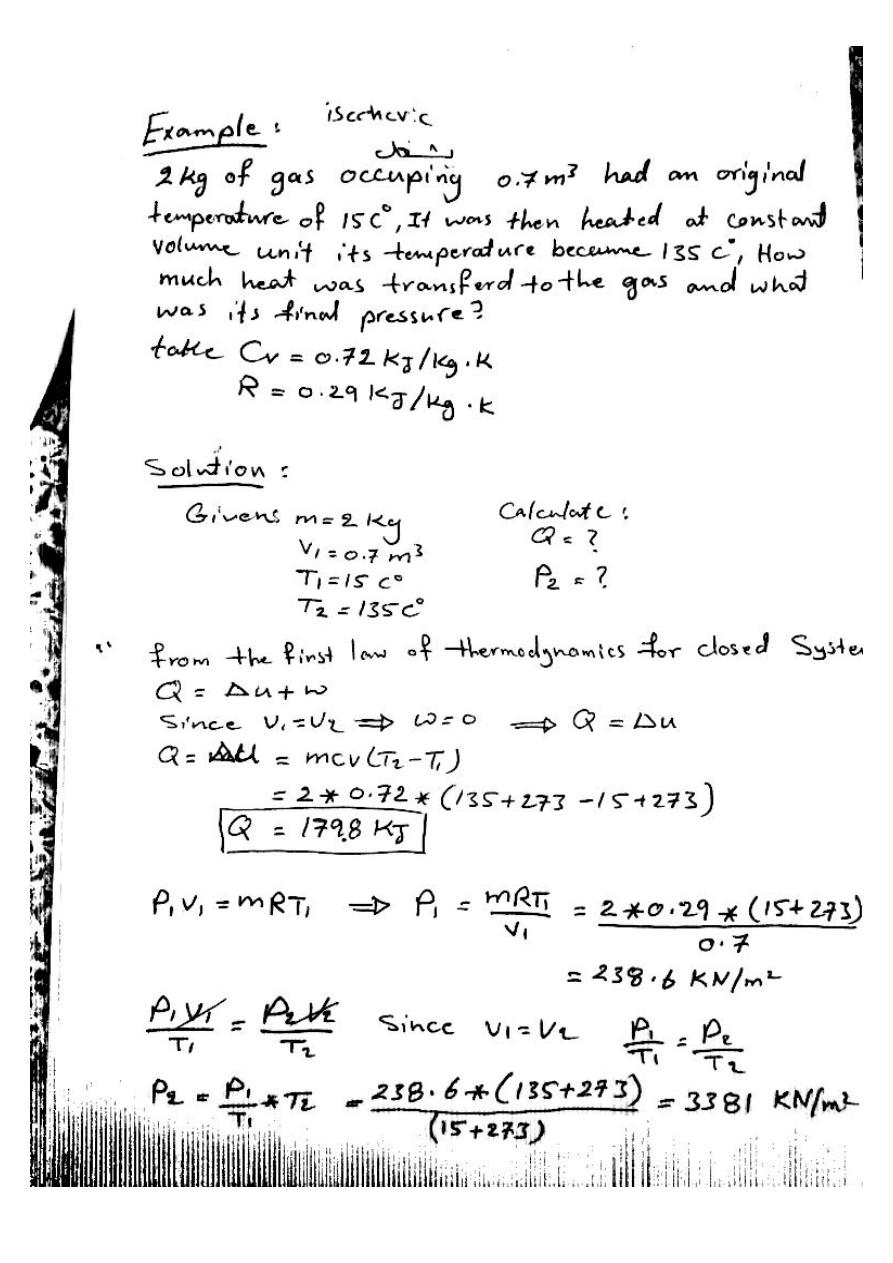 Example : isochoric
يشغل
2 kg of gas occuping 0.7 m³ had an original
temperature of 15 C°, It was then heated at constant
volume unit its temperature became 135 C°, How
much heat was transferd to the gas and what
was its final pressure?
take Cv = 0.72 KJ/kg.K
R = 0.29 KJ/kg.K
Solution :
Givens m = 2 kg Calculate :
V1 = 0.7 m³ Q = ?
T1 = 15 C° P2 = ?
T2 = 135 C°
from the first law of thermodynamics for closed Syste
Q = Δu + w
Since V1 = V2 ⇒ w = 0 ⇒ Q = Δu
Q = ΔU = mcv (T2 - T1)
= 2 * 0.72 * (135 + 273 - 15 + 273)
Q = 179.8 KJ
P1 V1 = mRT1 ⇒ P1 = mRT1 / V1 = 2 * 0.29 * (15 + 273) / 0.7
= 238.6 KN/m²
P1 V1 / T1 = P2 V2 / T2 Since V1 = V2 P1 / T1 = P2 / T2
P2 = P1 / T1 * T2 = 238.6 * (135 + 273) / (15 + 273) = 3381 KN/m²